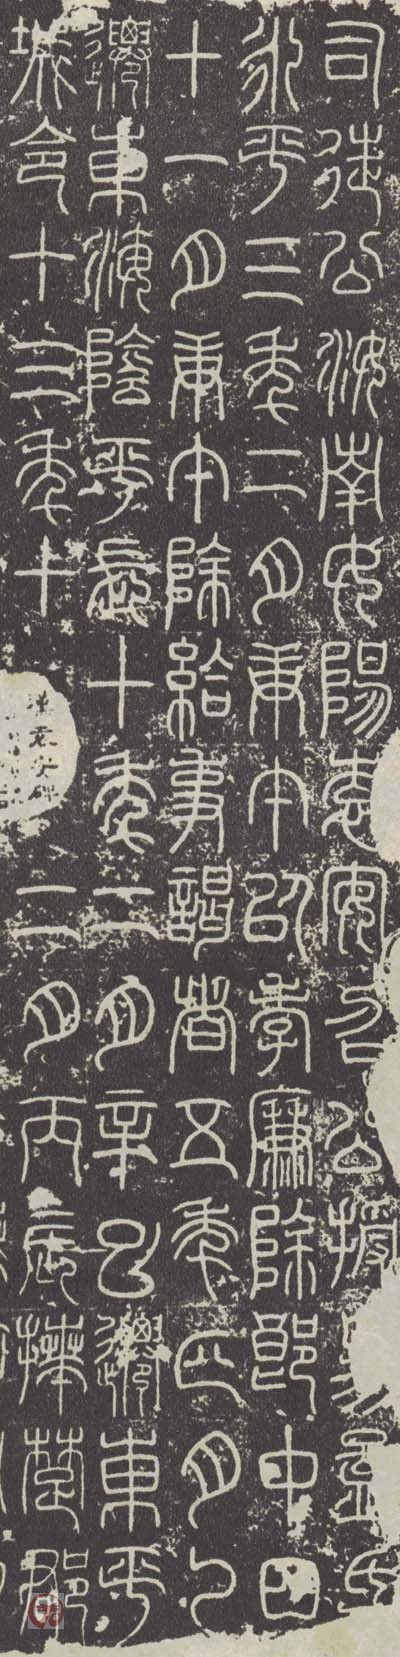 司徒公汝南女陽袁安召公授孟氏
永平三年二月庚午以孝廉除郎中四
十一月庚午除給事謁者五年四月乙
遷東海陰平長十年二月辛巳遷東平
城令十三年十二月丙辰拜楚郡
漢袁安碑